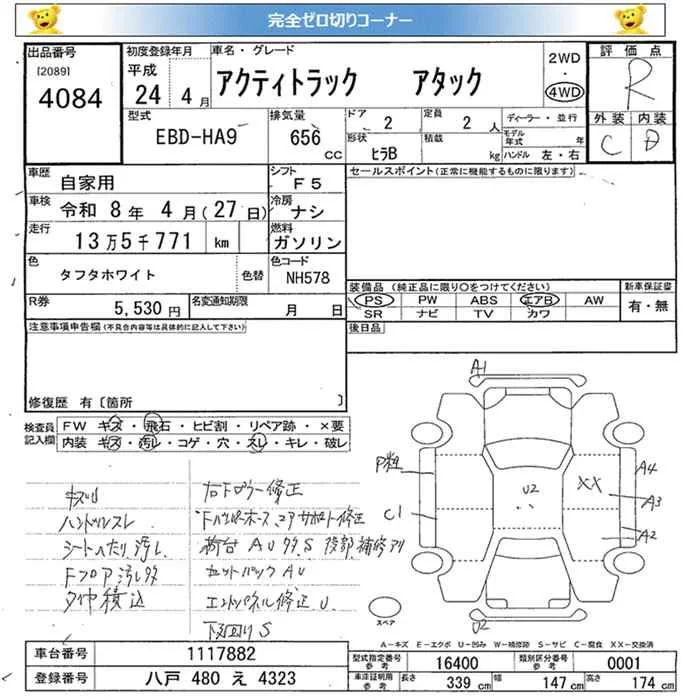 完全ゼロ切りコーナー
出品番号
[2089]
4084
初度登録年月
平成
24 4月
車名・グレード
アクティトラック アタック
2WD
・
4WD
評価点
R
外装 内装
C D
型式
EBD-HA9
排気量
656
CC
ドア
2
定員
2 人
ディーラー・並行
形状
ヒラB
積載
kg
モデル年式 年
ハンドル 左・右
車歴
自家用
シフト
F5
セールスポイント(正常に機能するものに限ります)
車検
令和 8年 4月(27日)
冷房
ナシ
走行
13万5千771 km
燃料
ガソリン
色
タフタホワイト
色替
色コード
NH578
装備品(純正品に限り○をつけてください)
PS PW ABS エアB AW
SR ナビ TV カワ
新車保証書
有・無
R券
5,530円
名変通知期限
月 日
後日品
注意事項申告欄(不具合内容等は具体的に記入して下さい)
修復歴 有〔箇所 〕
検査員記入欄
FW キズ・飛石・ヒビ割・リペア跡・×要
内装 キズ・汚れ・コゲ・穴・スレ・キレ・破レ
ハンドルスレ
シートヘたり汚れ
Fフロア汚レ
タイヤ積込
荷台 AUサS 後部補修アリ
セットバックAU
エンドパネル修正U
下廻りS
A1
P粒
C1
U2
XX
A4
A3
A2
U2
スペア
A-キズ E-エクボ U-凹み W-補修跡 S-サビ C-腐食 XX-交換済
車台番号
1117882
登録番号
八戸 480 え 4323
型式指定番号
参考
16400
類別区分番号
参考
0001
車庫証明用
参考
長さ
339 cm
幅
147 cm
高さ
174 cm